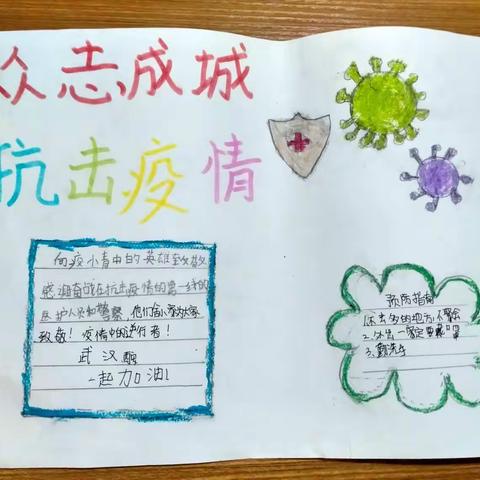 众志成城
抗击疫情
向疫情中的英雄致敬
感谢奋战在抗击疫情的第一线的
医护人员和警察,他们舍小家为大家
致敬!疫情中的逆行者!
武汉
一起加油!
预防指南
1.不去多的地方不聚会
2.外出一定要戴口罩
3.勤洗手